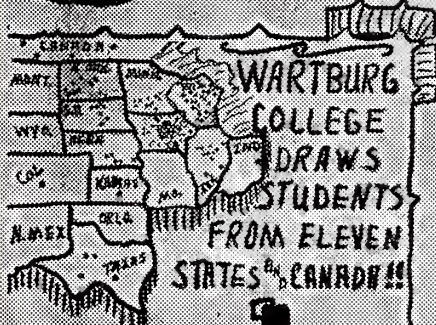 CANADA
MONT.
MINN.
WYO.
NEBR.
COL.
KANSAS
MO.
ILL.
IND.
N.MEX
OKLA.
TEXAS
WARTBURG
COLLEGE
DRAWS
STUDENTS
FROM ELEVEN
STATES AND CANADA!!